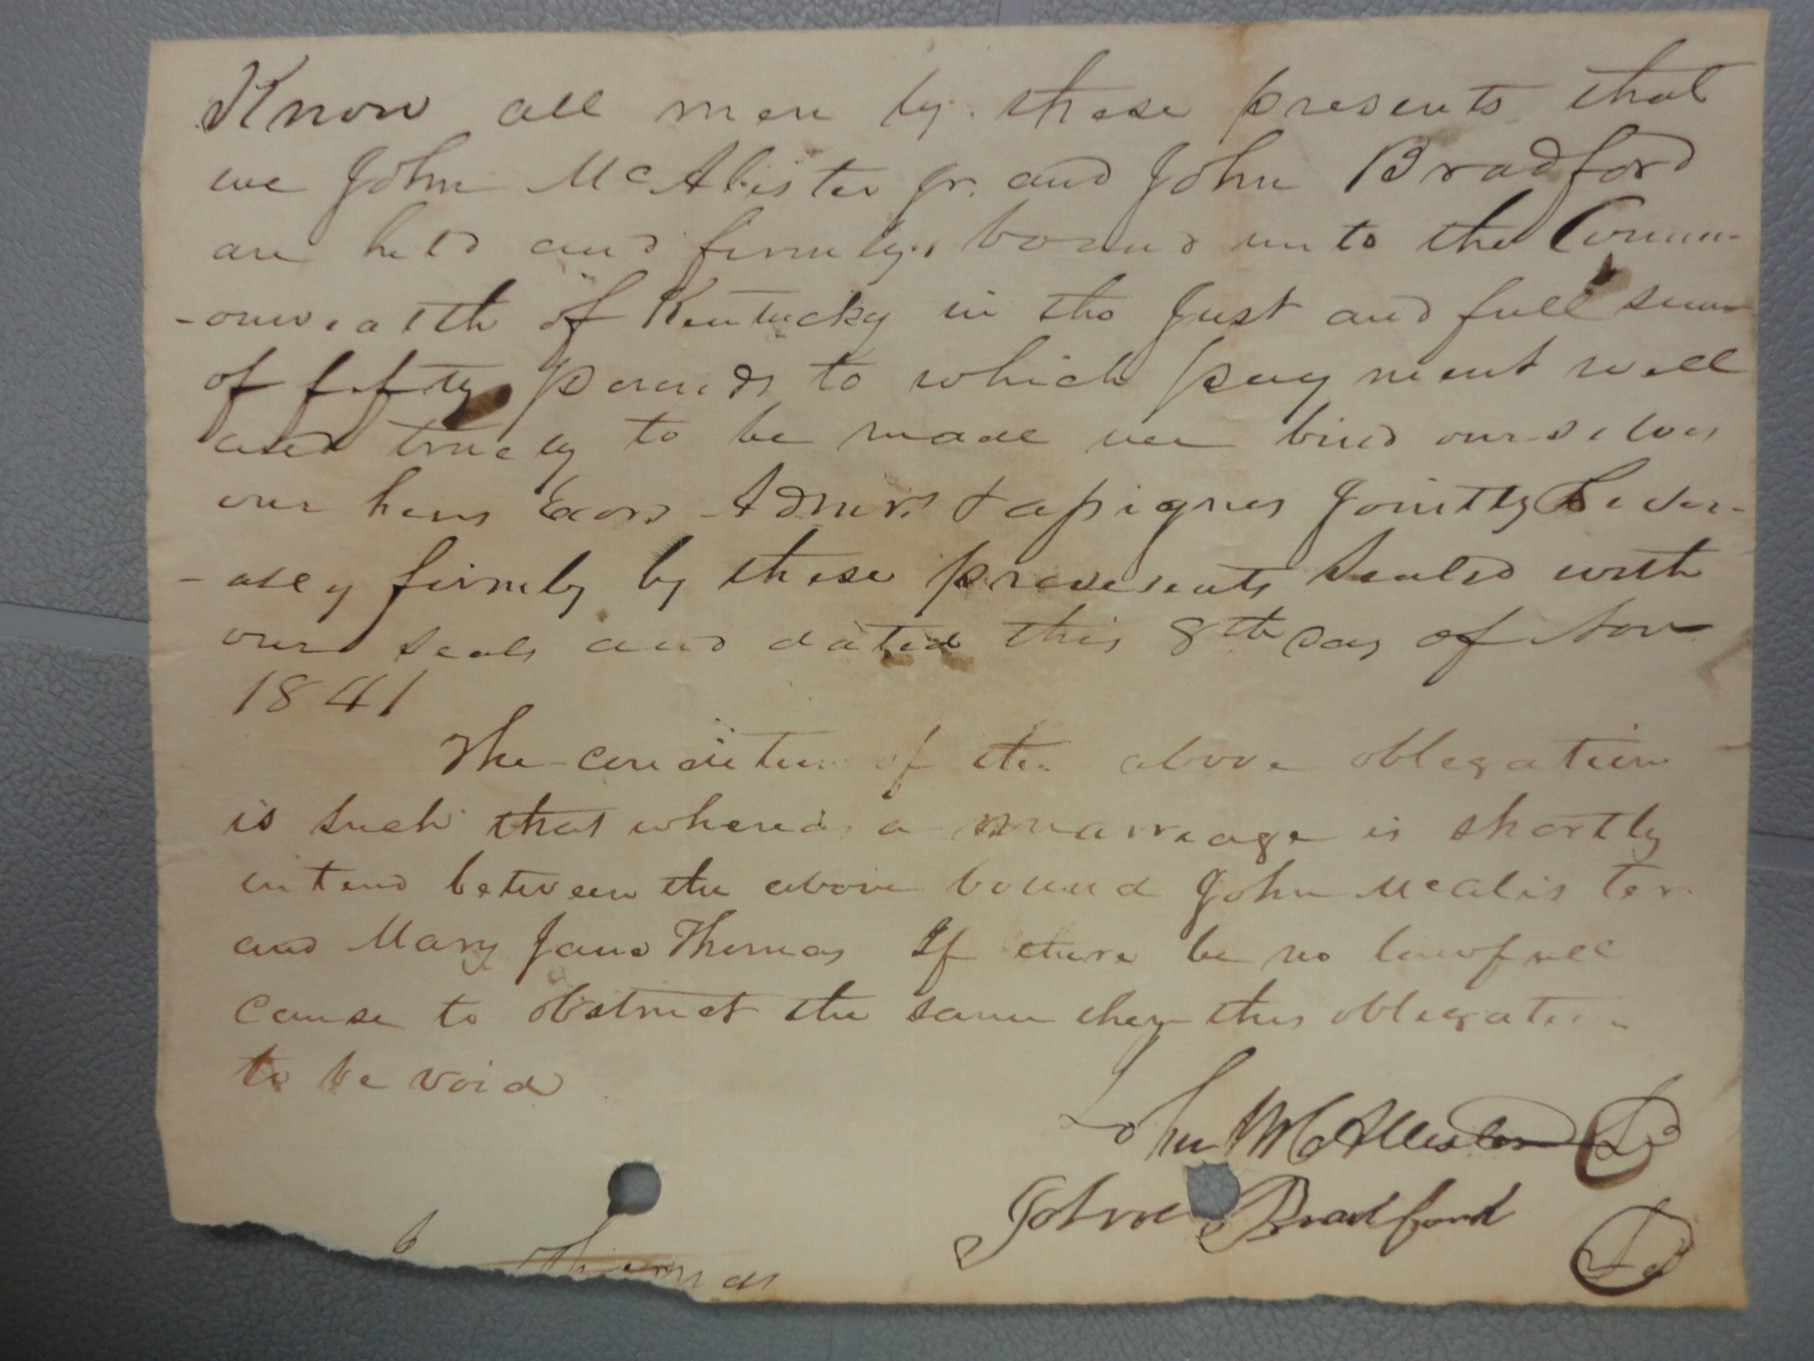 Know all men by these presents that
we John McAlister Jr. and John Bradford
are held and firmly bound unto the Comm-
-onwealth of Kentucky in the Just and full sum
of fifty pounds to which payment well
and truely to be made we bind ourselves
our heirs Exors Admrs & assignes Jointly Sever-
-ally firmly by these presents Sealed with
our seals and dated this 8th day of Nov
1841
The condition of the above obligation
is such that whereas a marriage is shortly
intend between the above bound John McAlister
and Mary Jane Thomas If there be no lawfull
cause to obstruct the same then this obligation
to be void
John McAllister
John Bradford
Thomas